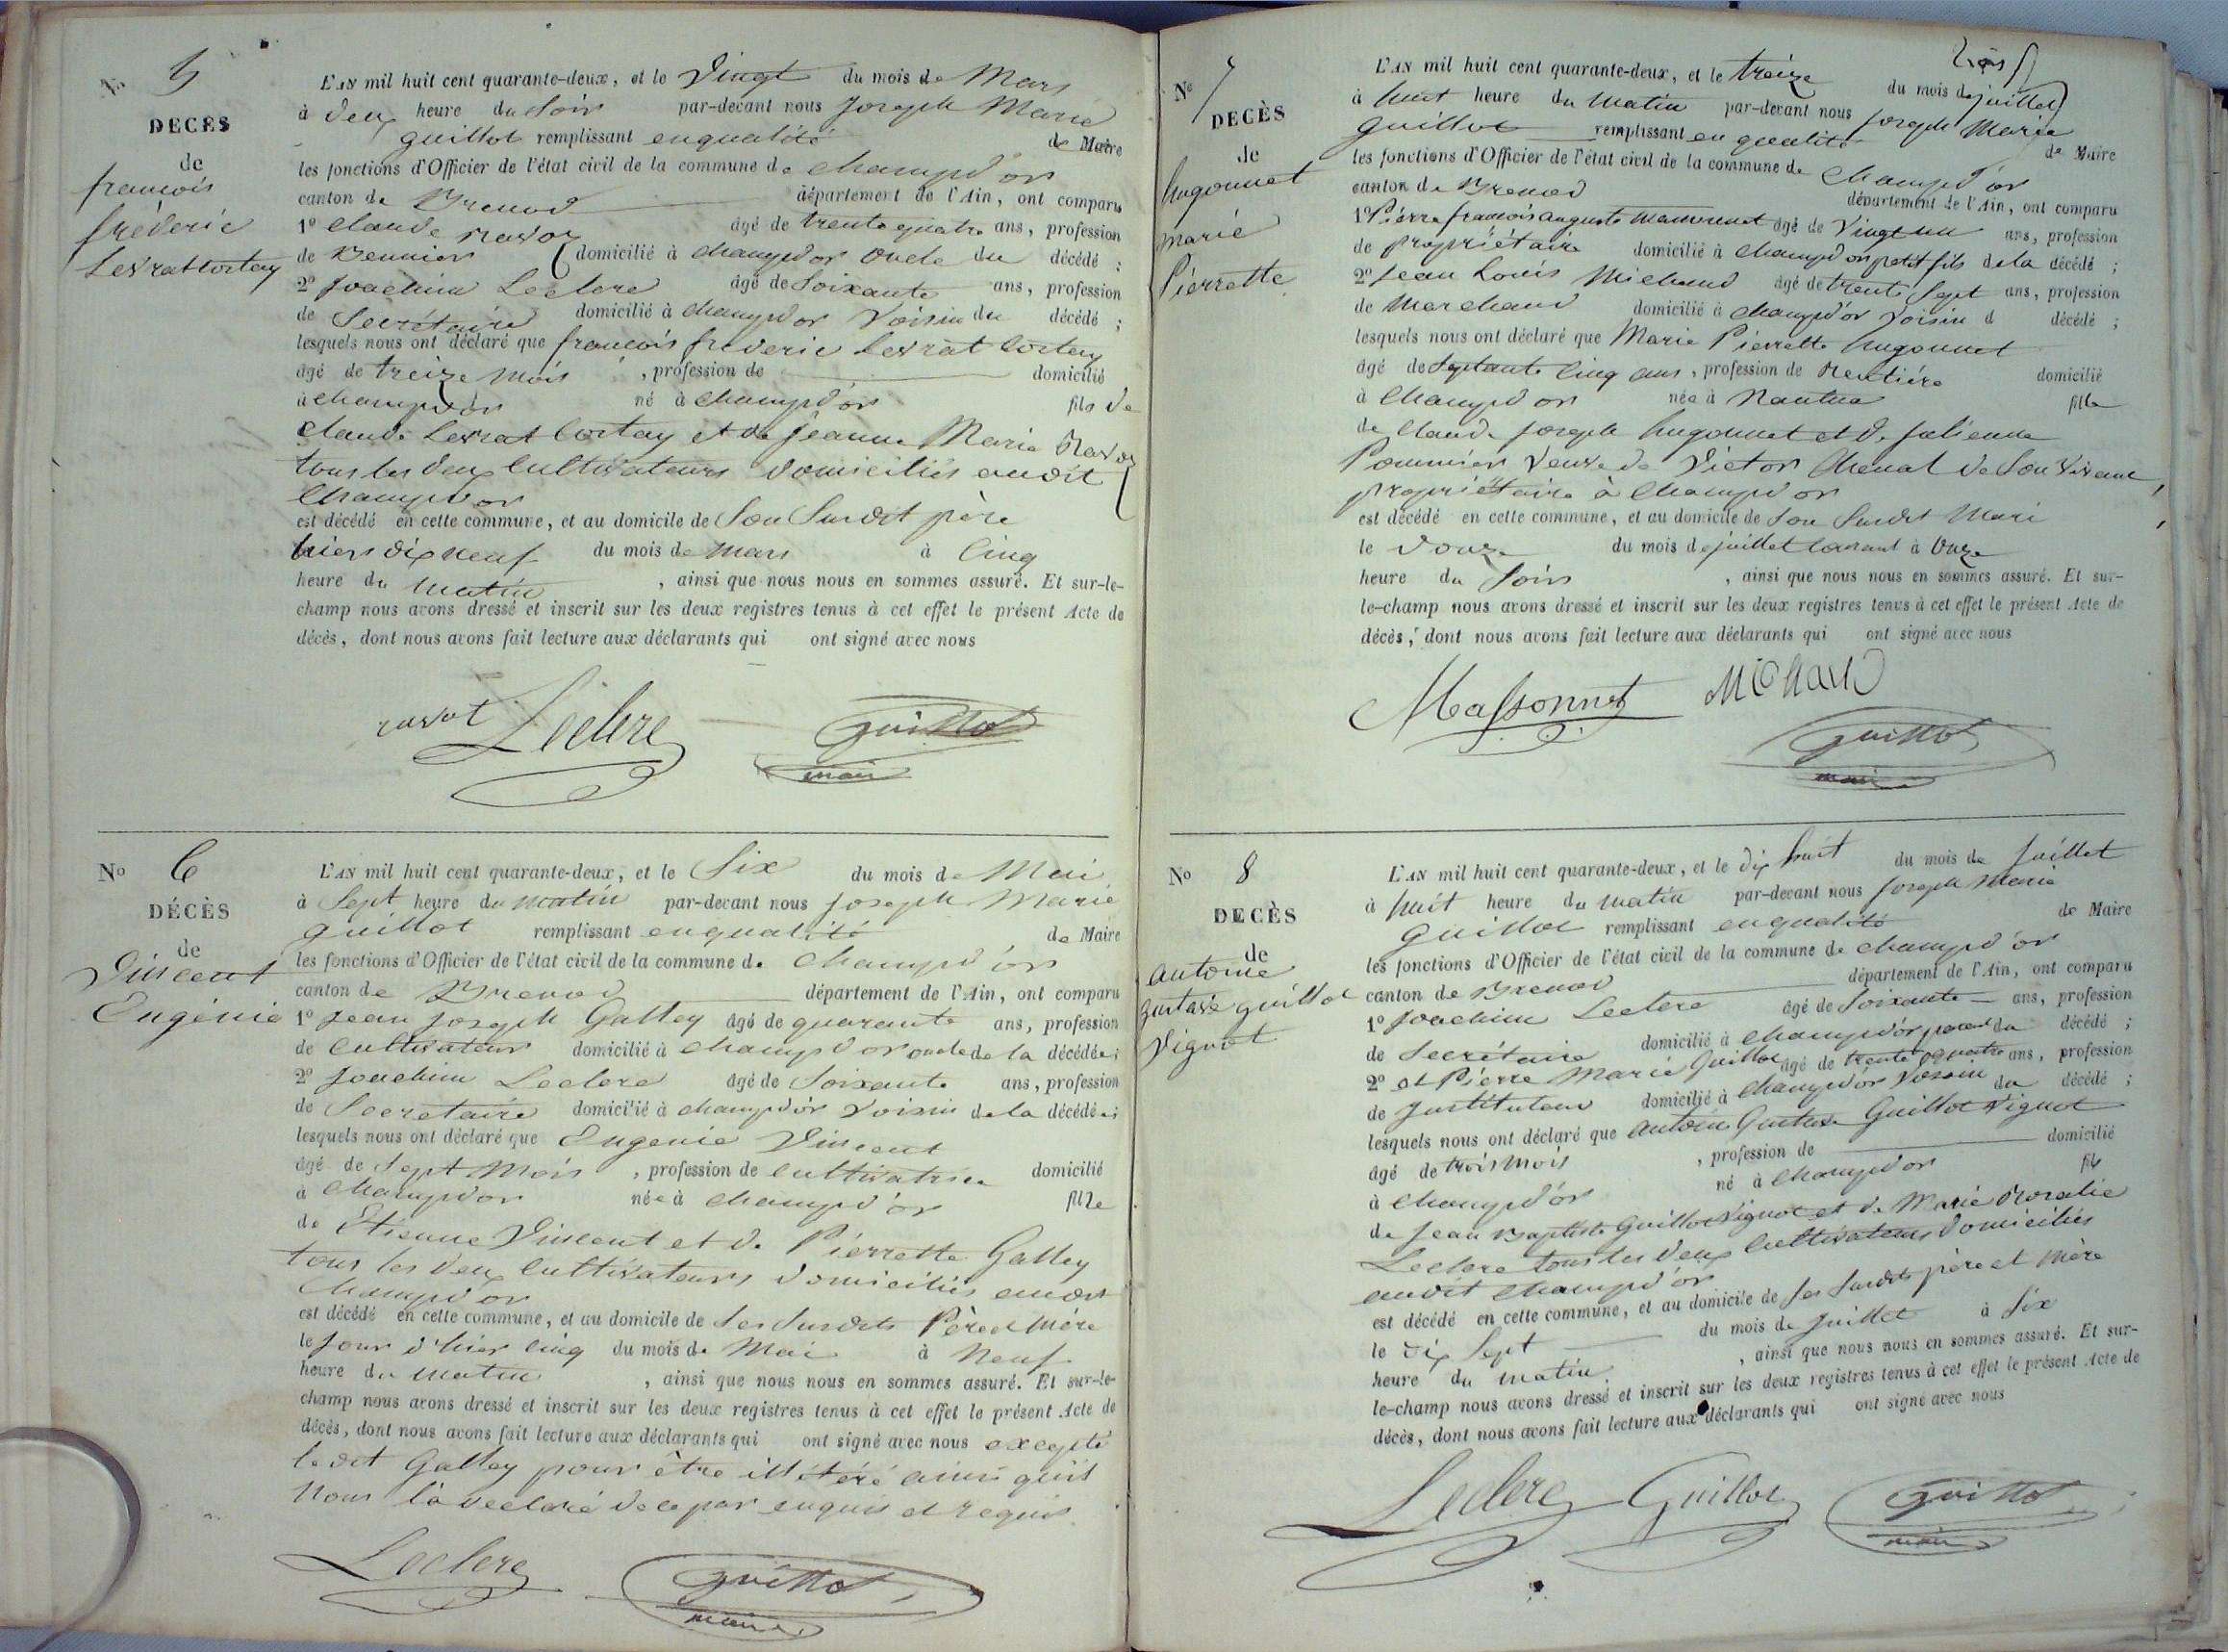 No 5
DECÈS
de
françois
fréderic
Levrat cortey
L'AN mil huit cent quarante-deux, et le Vingt du mois de Mars
à deux heure du Soir par-devant nous Joseph Marie
guillot remplissant en qualité de Maire
les fonctions d'Officier de l'état civil de la commune de Champd'or
canton de Brenod département de l'Ain, ont comparu
1° Claude ravoz âgé de trente quatre ans, profession
de domicilié à champd'or oncle du décédé ;
2° Joachim Leclerc âgé de Soixante ans, profession
de Secrétaire domicilié à champd'or Voisin du décédé ;
lesquels nous ont déclaré que françois frederic Levrat Cortey
âgé de treize mois , profession de domicilié
à champd'or né à champd'or fils de
Claude Levrat Cortey et de Jeanne Marie Ravoz
tous les deux Cultivateurs domiciliés audit
Champd'or
est décédé en cette commune, et au domicile de Son Susdit père
hiers dix neuf du mois de mars à Cinq
heure du matin , ainsi que nous nous en sommes assuré. Et sur-le-
champ nous avons dressé et inscrit sur les deux registres tenus à cet effet le présent Acte de
décès, dont nous avons fait lecture aux déclarants qui ont signé avec nous
ravot Leclerc guillot
maire
No 6
DÉCÈS
de
Vincent
Eugénie
L'AN mil huit cent quarante-deux, et le Six du mois de Mai
à Sept heure du matin par-devant nous Joseph Marie
guillot remplissant en qualité de Maire
les fonctions d'Officier de l'état civil de la commune de Champd'or
canton de Brenod département de l'Ain, ont comparu
1° Jean Joseph Galley âgé de quarante ans, profession
de Cultivateur domicilié à Champd'or oncle de la décédée ;
2° Joachim Leclerc âgé de Soixante ans, profession
de Secretaire domicilié à champd'or Voisin de la décédée ;
lesquels nous ont déclaré que Eugenie Vincent
âgé de Sept Mois , profession de Cultivatrice domicilié
à Champd'or née à Champd'or fille
de Etienne Vincent et de Pierrette Galley
tous les deux Cultivateurs domiciliés audit
Champd'or
est décédé en cette commune, et au domicile de Ses Susdits Père et Mère
le Jour d'hier cinq du mois de Mai à Neuf
heure du matin , ainsi que nous nous en sommes assuré. Et sur-le-
champ nous avons dressé et inscrit sur les deux registres tenus à cet effet le présent Acte de
décès, dont nous avons fait lecture aux déclarants qui ont signé avec nous excepté
le dit Galley pour être illétéré ainsi qu'il
Nous l'a declaré de ce par enquis et requis
Leclerc guillot
maire
No 7
DECÈS
de
hugonnet
marie
Pierrette
L'AN mil huit cent quarante-deux, et le treize du mois de juillet
à huit heure du matin par-devant nous Joseph Marie
guillot remplissant en qualité de Maire
les fonctions d'Officier de l'état civil de la commune de Champd'or
canton de Brenod département de l'Ain, ont comparu
1° Pierre françois auguste âgé de Vingt un ans, profession
de propriétaire domicilié à champd'or petit fils de la décédé ;
2° Jean Louis Michaud âgé de trente Sept ans, profession
de Marchand domicilié à champd'or Voisin d décédé ;
lesquels nous ont déclaré que Marie Pierrette hugonnet
âgé de Septante Cinq ans , profession de Rentière domicilié
à Champd'or née à Nantua fille
de Claude Joseph hugonnet et de Julienne
Pommier Veuve de Victor Chenal de Son Vivant
propriétaire à Champd'or
est décédé en cette commune, et au domicile de Son Susdit Mari
le Douze du mois de juillet Courant à Onze
heure du Soir , ainsi que nous nous en sommes assuré. Et sur-
le-champ nous avons dressé et inscrit sur les deux registres tenus à cet effet le présent Acte de
décès, dont nous avons fait lecture aux déclarants qui ont signé avec nous
Massonnet Michaud
guillot
maire
No 8
DECÈS
de
antoine
gustave guillot
Vignot
L'AN mil huit cent quarante-deux, et le dix huit du mois de Juillet
à huit heure du matin par-devant nous Joseph Marie
Guillot remplissant en qualité de Maire
les fonctions d'Officier de l'état civil de la commune de Champd'or
canton de Brenod département de l'Ain, ont comparu
1° Joachim Leclerc âgé de Soixante ans, profession
de Secrétaire domicilié à Champd'or parent du décédé ;
2° et Pierre Marie Guillot âgé de trente quatre ans, profession
de Instituteur domicilié à Champd'or Voisin du décédé ;
lesquels nous ont déclaré que antoine Gustave Guillot Vignot
âgé de trois Mois , profession de domicilié
à Champd'or né à Champd'or fils
de Jean Baptiste Guillot Vignot et de Marie Rosalie
Leclerc tous les deux Cultivateurs domiciliés
audit Champd'or
est décédé en cette commune, et au domicile de Ses Susdits père et Mère
le dix Sept du mois de Juillet à Six
heure du matin , ainsi que nous nous en sommes assuré. Et sur-
le-champ nous avons dressé et inscrit sur les deux registres tenus à cet effet le présent Acte de
décès, dont nous avons fait lecture aux déclarants qui ont signé avec nous
Leclerc Guillot guillot
maire